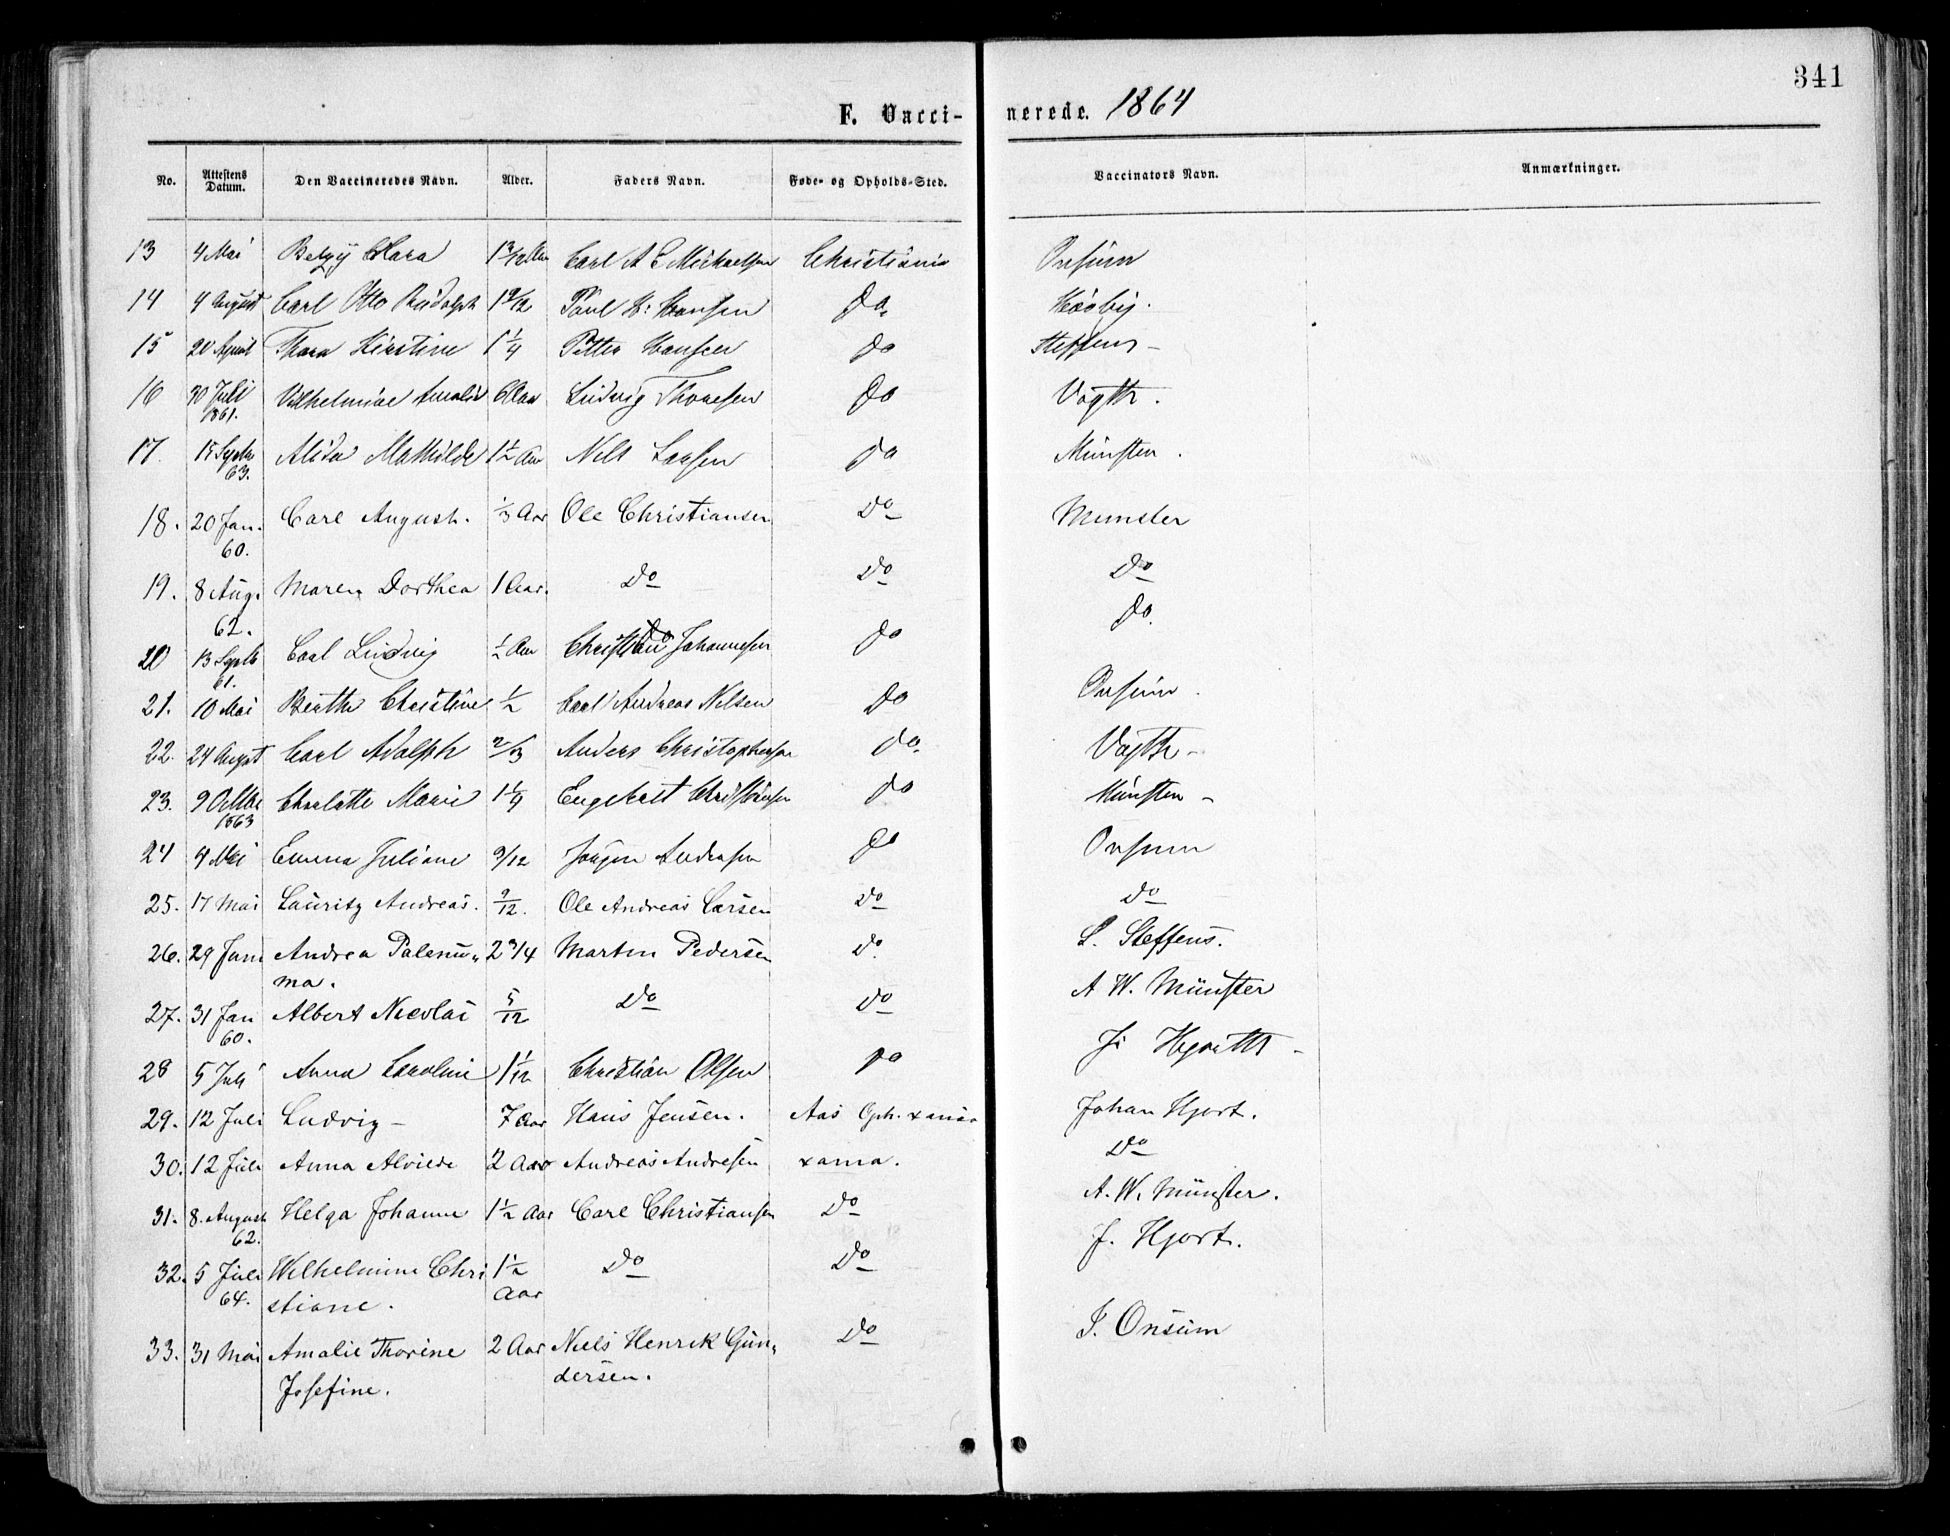 341
F. Vacci- nerede. 1864
No. Attestens Datum. Den Vaccineredes Navn. Alder. Faders Navn. Føde- og Opholds-Sted. Vaccinators Navn. Anmærkninger.
13 4 Mai Betzÿ Clara Carl A E Michaelsen Christiania Onsum
14 4 August Carl Otto Rudolph 1 9/12 Paul H. Hansen do
15 20 April Thora Kirstine 1 1/4 Petter Hansen do Steffens –
16 30 Juli 1861. Vilhelmine Amalie 6 Aar Ludvig Thoresen Do Vogth.
17. 15 Septbr 63. Alida Mathilde 1 1/2 Aar Nils Larsen do Münster.
18. 20 Jan. 60. Carl August. 1/3 Aar Ole Christiansen Do Munster
19. 8 Aug. 62. Maren Dorthea 1 Aar. Do Do Do
20 13 Septb 61. Carl Ludvig 1/2 Aar Christian Johannesen do do.
21. 10 Mai Berthe Christine 1/2 Carl Andreas Nilsen do Onsum.
22. 24 August Carl Adolph 2/3 Anders Christophersen do. Vogth –
23. 9 Octbr 1863 Charlotte Marie 1 1/4 Engebret Christiansen do Münster –
24 4 Mai Emma Juliane 9/12 Jørgen Andersen do Onsum
25. 17 Mai Lauritz Andreas. 9/12. Ole Andreas Larsen Do Do
26. 29 Juni Andrea Palenu„ 2 3/4 Martin Pedersen Do. L. Steffens.
ma.
27. 31 Jan 60. Albert Nicolai 5/12 Do Do A W. Münster
28 5 Juli Anna Caroline 1 1/12 Christian Olsen do
29. 12 Juli Ludvig – 7 Aar Hans Jensen. Aas Oph. xania Johan Hjort.
30. 12 Juli Anna Alvilde 2 Aar Andreas Andresen xania. Do
31. 8. August 62. Helga Johanne 1 1/2 Aar Carl Christiansen Do A. W. Münster.
32. 5 Juli 64. Wilhelmine Chri 1 1/2 Aar Do Do J. Hjort.
stiane.
33. 31 Mai Amalie Thorine 2 Aar Niels Henrik Gun„ Do J. Onsum
Josefine. dersen.